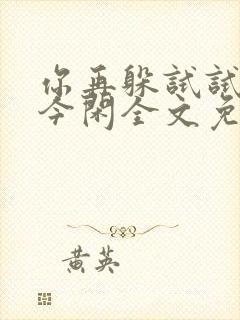 你再躲试试
今闲全文免
黄英